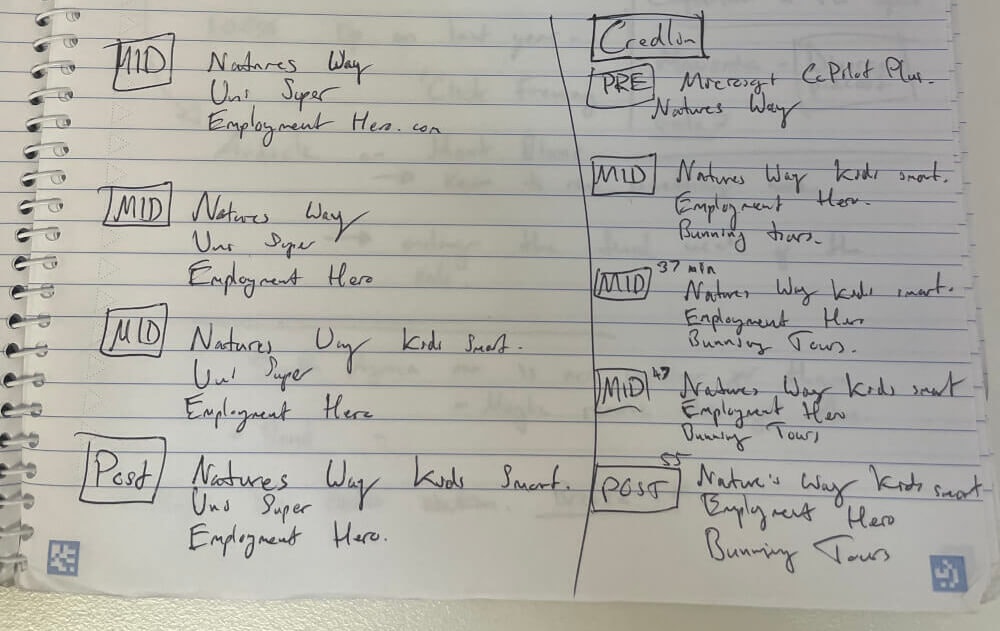 MID
Natures Way
Uni Super
Employment Hero.com
MID
Natures Way
Uni Super
Employment Hero
MID
Natures Way Kids Smart.
Uni Super
Employment Hero
Post
Natures Way Kids Smart.
Uni Super
Employment Hero.
PRE Microsoft CoPilot Plus.
Natures Way
MID
Natures Way Kids smart.
Employment Hero.
Bunning Tours.
MID 37 min
Natures Way Kids smart.
Employment Hero
Bunning Tours.
MID 47
Natures Way Kids smart
Employment Hero
Bunning Tours
POST 55
Nature's Way Kids smart
Employment Hero
Bunning Tours